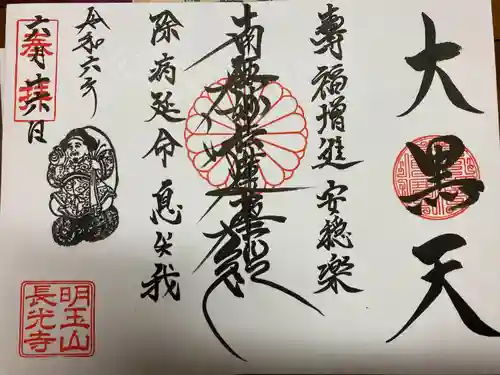 大黒天
壽福増進 安穏樂
南無妙法蓮華経
除病延命 息災我
令和六年
六月十六日
奉拝
明玉山
長光寺